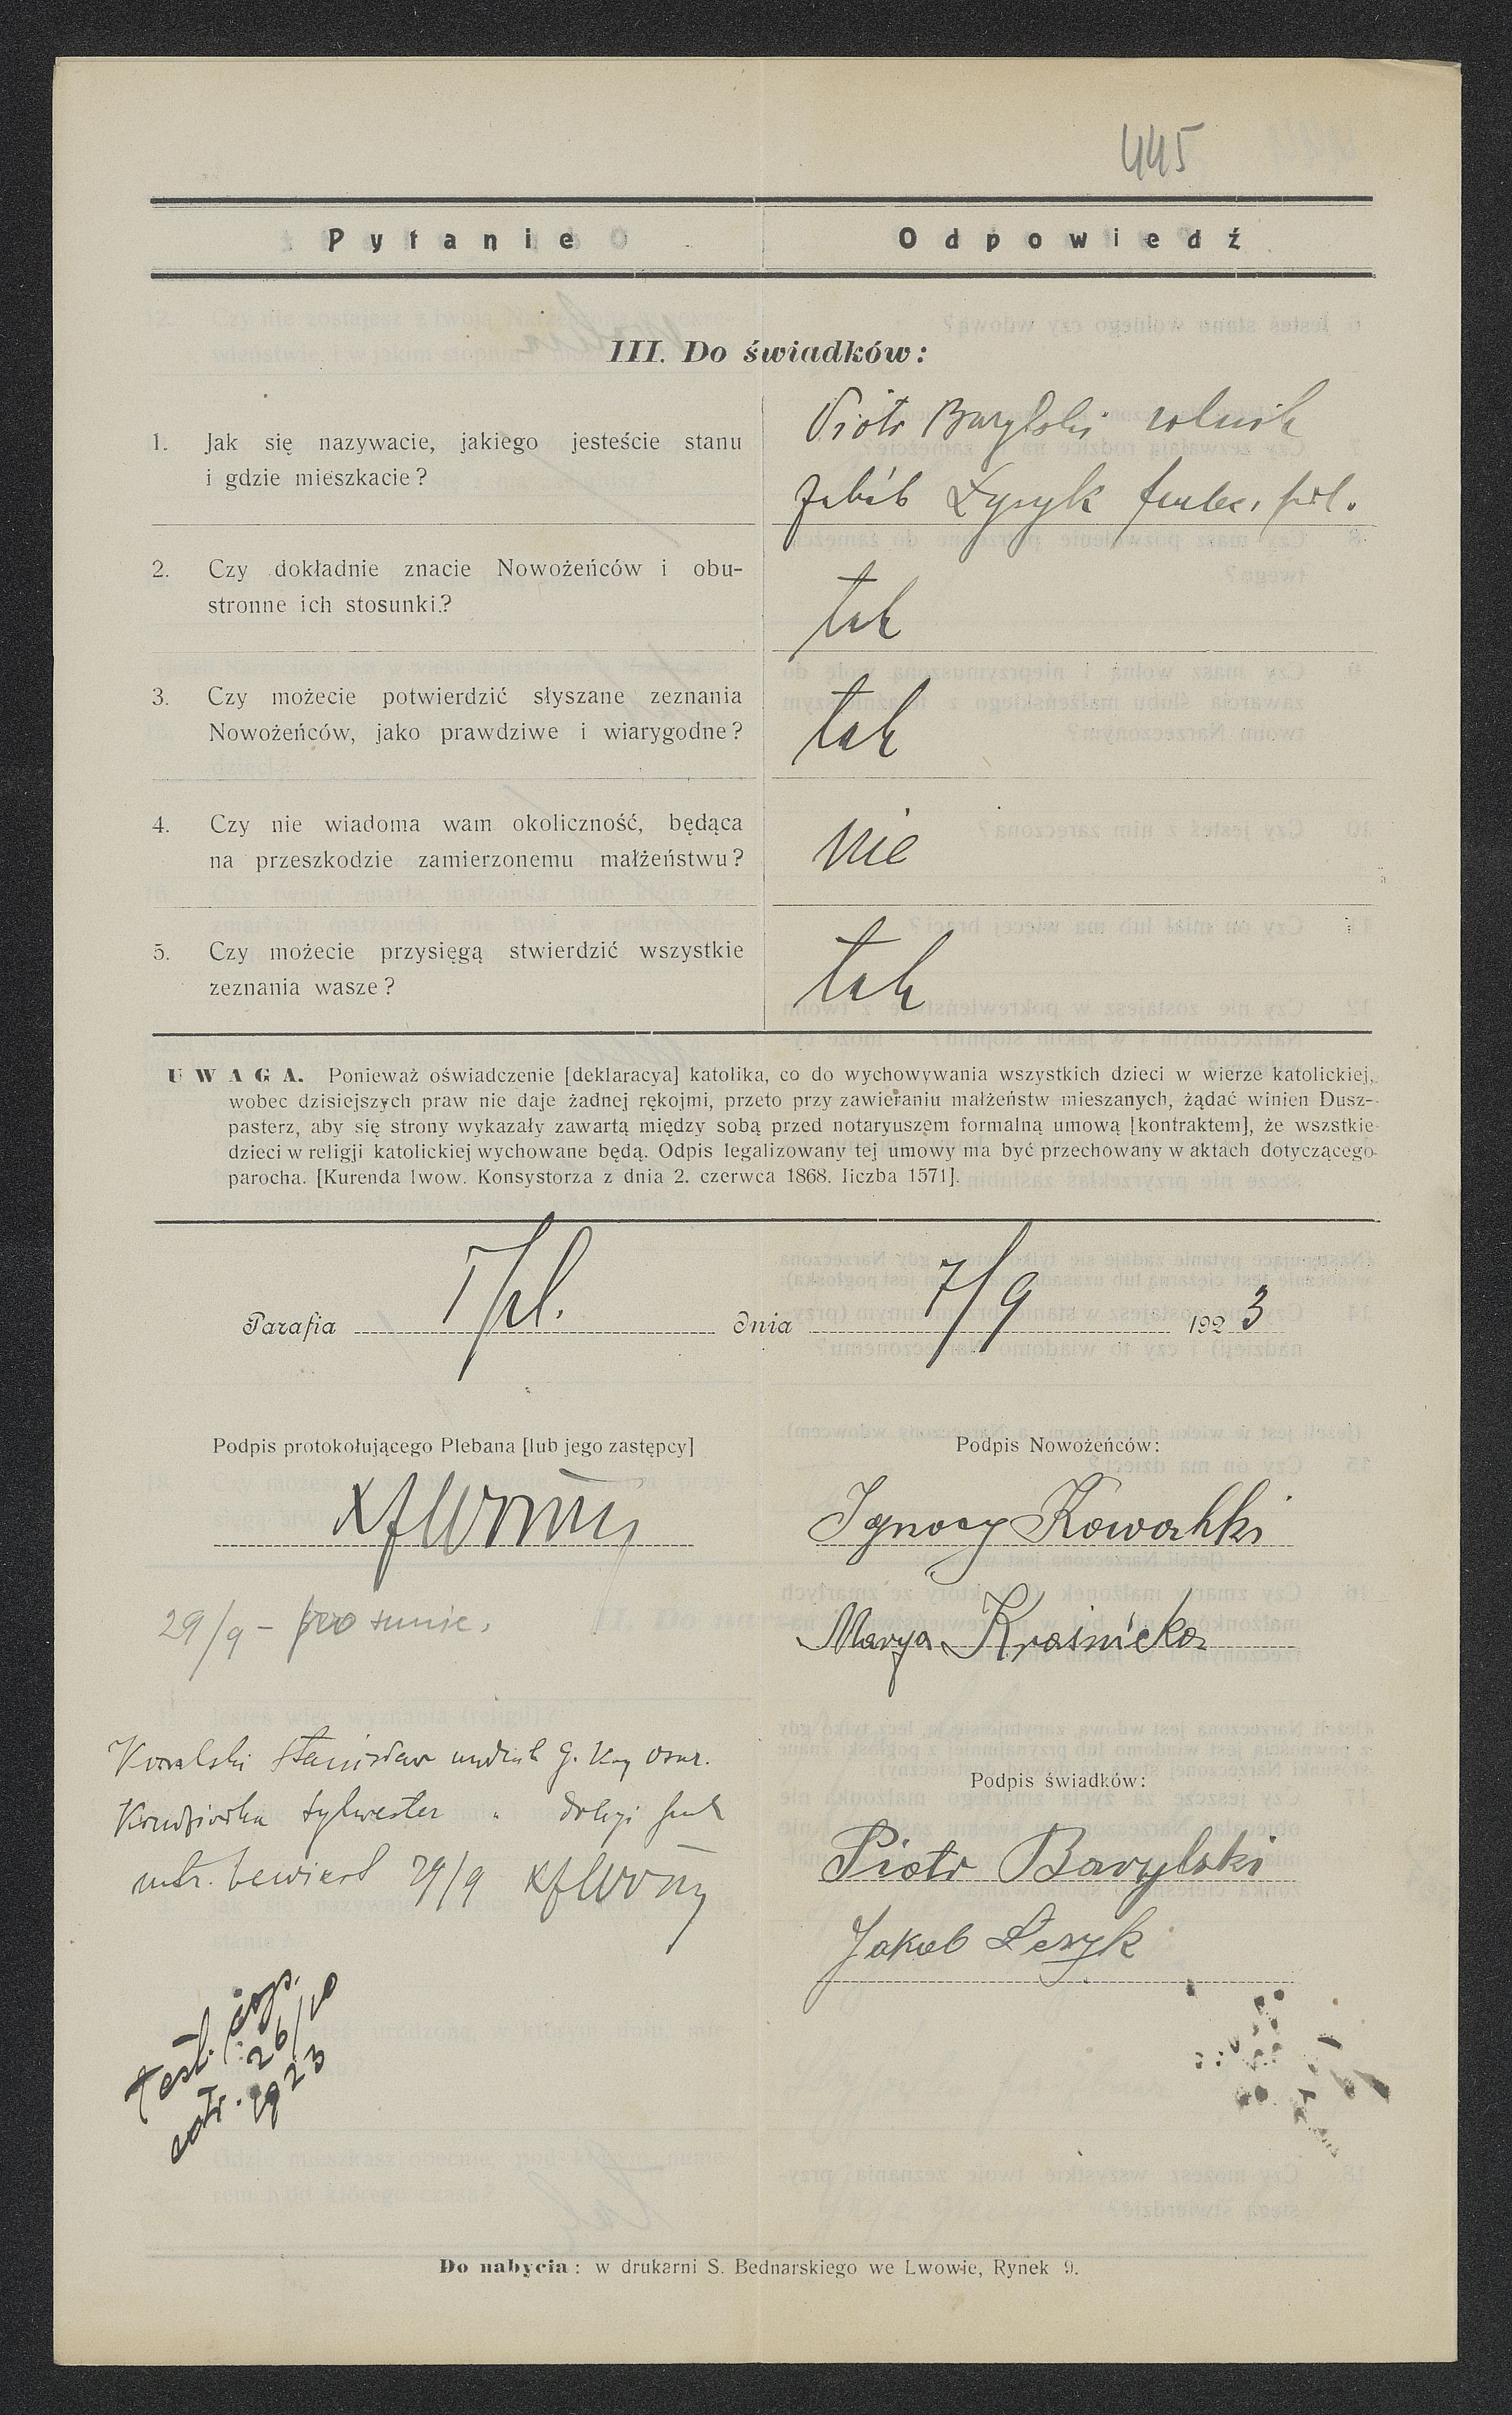 445
Pytanie Odpowiedź
III. Do świadków:
1. Jak się nazywacie, jakiego jesteście stanu
i gdzie mieszkacie?
Piotr Barylski rolnik
Jakób Łysyk funkc. pol.
2. Czy dokładnie znacie Nowożeńców i obu-
stronne ich stosunki?
tak
3. Czy możecie potwierdzić słyszane zeznania
Nowożeńców, jako prawdziwe i wiarygodne?
tak
4. Czy nie wiadoma wam okoliczność, będąca
na przeszkodzie zamierzonemu małżeństwu?
nie
5. Czy możecie przysięgą stwierdzić wszystkie
zeznania wasze?
tak
UWAGA. Ponieważ oświadczenie [deklaracya] katolika, co do wychowywania wszystkich dzieci w wierze katolickiej,
wobec dzisiejszych praw nie daje żadnej rękojmi, przeto przy zawieraniu małżeństw mieszanych, żądać winien Dusz-
pasterz, aby się strony wykazały zawartą między sobą przed notaryuszem formalną umową [kontraktem], że wszstkie
dzieci w religji katolickiej wychowane będą. Odpis legalizowany tej umowy ma być przechowany w aktach dotyczącego
parocha. [Kurenda lwow. Konsystorza z dnia 2. czerwca 1868. liczba 1571].
Parafia dnia 7/9 1923
Podpis protokołującego Plebana [lub jego zastępcy]
Podpis Nowożeńców:
Ignacy Kowalski
29/9 - po sumie.
Marya Kraśnicka
Kowalski Stanisław
Podpis świadków:
Sylwester
29/9
Piotr Barylski
Jakub Łesyk
test. exp.
26/10
1923
Do nabycia: w drukarni S. Bednarskiego we Lwowie, Rynek 9.